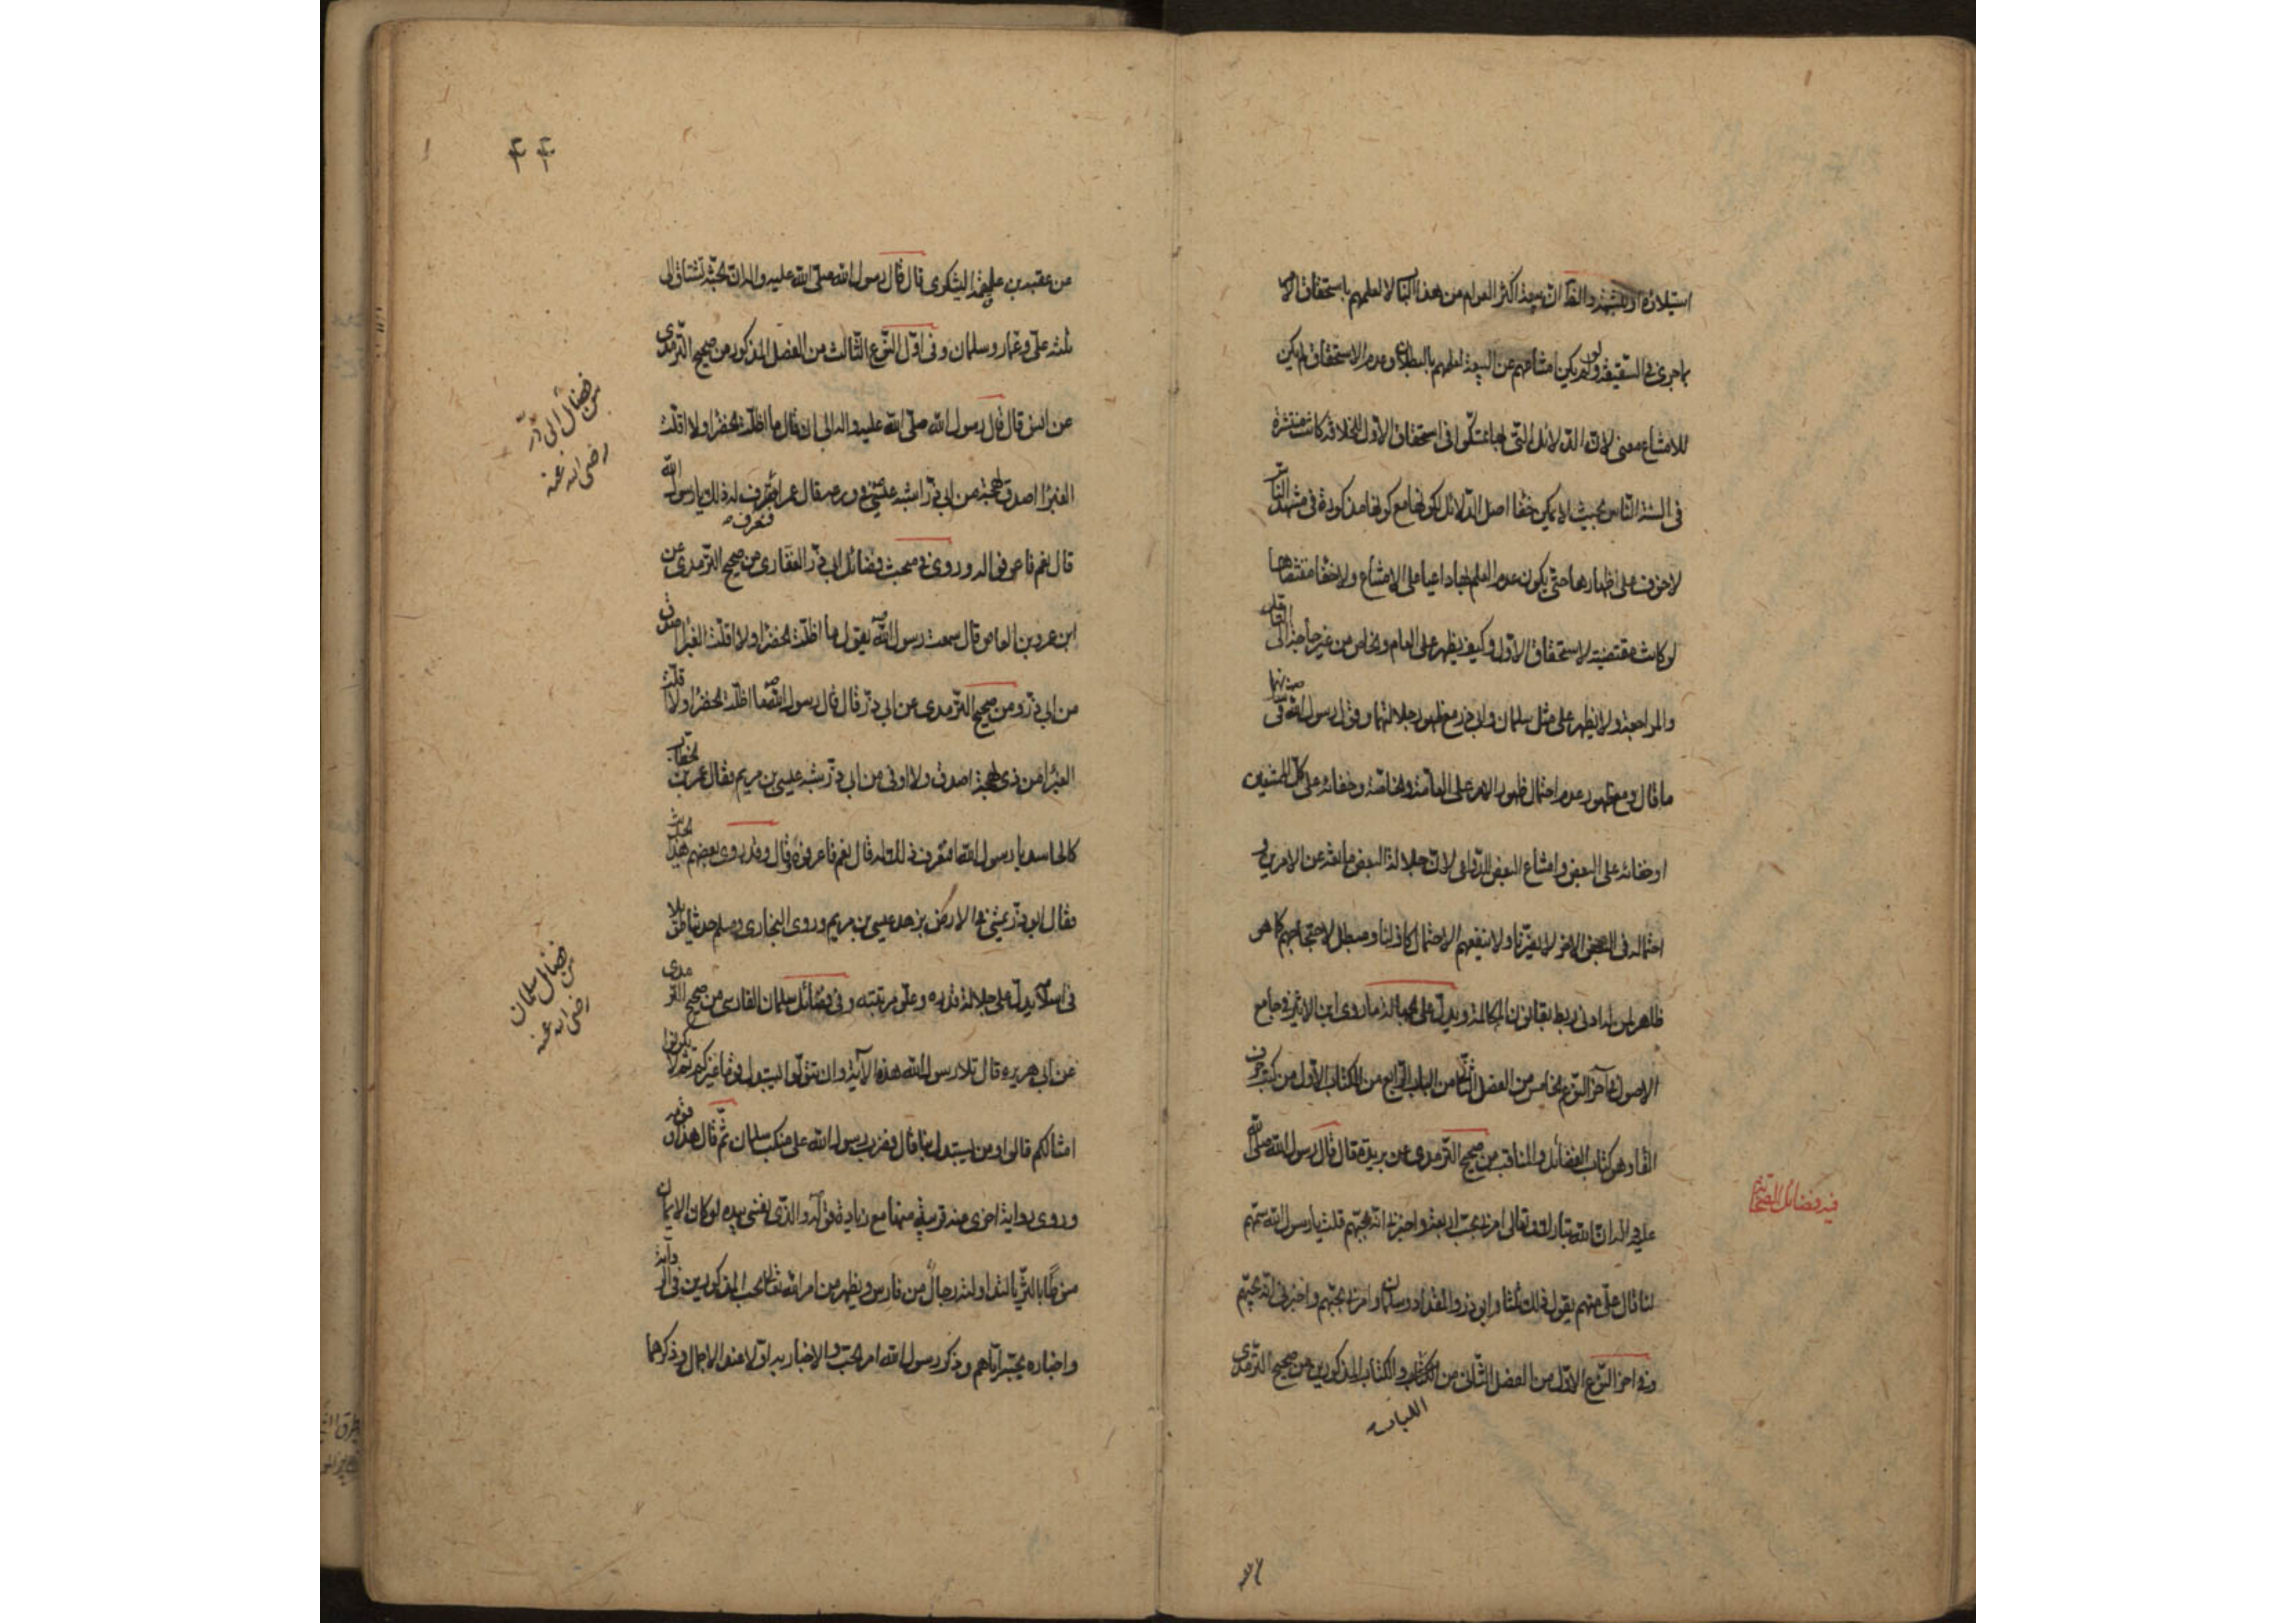 استيلائه او بلشبهة والظ ان بيعة اكثر العوام من هذا الباب لا لعلمهم باستحقاق الاول
بما جرى في السقيفة ولو لم يكن امتناعهم عن البيعة لعلمهم بالبطلان وعدم الاستحقاق لم يكن
للامتناع معنى لان الدلائل التي بها تمسكوا في استحقاق الاول للخلافة كانت منتشرة
في السنة الناس بحيث لا يمكن خفاء اصل الدلائل لكونها مع كونها مذكورة في مشهد الناس
لا خوف على اظهارها حتى يكون عدم العلم بها داعيا على الامتناع ولا خفاء مقتضاها
لو كانت مقتضية لاستحقاق الاول وكيف يظهر على العام والخاص من غير حاجة الى
والمراجعة ولا يظهر على مثل سلمان وابي ذر مع ظهور جلالتهما وقول رسول الله في شأنهما
ما قال ومع ظهور عدم احتمال ظهور الامر على العامة والخاصة وخفائه على كل الممتنعين
او خفائه على البعض وامتناع البعض الدواعي لان جلالة البعض مانعة عن الامرين و
احتماله في البعض الاخر لا يضرنا ولا ينفعهم الاحتمال كاف لنا ومبطل لاحتجاجهم كما هو
ظاهر لمن له ادنى ربط بقانون المكالمة ويدل على جلالة ما روى ابن الاثير في جامع
الاصول في آخر النوع الخامس من الفصل الثاني من الباب الرابع من الكتاب الاول من كتب حرف
الفاء وهو كتاب الفضائل والمناقب من صحيح الترمذي عن بريدة قال قال رسول الله صلى الله
عليه واله ان الله تبارك وتعالى امرني بحب اربعة واخبرني انه يحبهم قلت يا رسول الله سمهم
لنا قال علي منهم يقول ذلك ثلثا وابو ذر والمقداد وسلمان وامرني بحبهم واخبرني انه يحبهم
وفي اخر النوع الاول من الفصل الثاني من الباب والكتاب المذكورين من صحيح الترمذي
فيه فضائل الصحابة
عن
٤٤
عن عقبة بن علقمة اليشكري قال قال رسول الله صلى الله عليه واله ان الجنة تشتاق الى
ثلثة علي وعمار وسلمان وفي اول النوع الثالث من الفصل المذكور من صحيح الترمذي
عن انس قال قال رسول الله صلى الله عليه واله الى ان قال ما اظلت الخضراء ولا اقلت
الغبراء اصدق لهجة من ابي ذر اشبه عيسى في ورعه قال عمر افنعرف له ذلك يا رسول الله
قال نعم فاعرفوا له وروى في مبحث فضائل ابي ذر الغفاري من صحيح الترمذي عن
ابن عمرو بن العاص قال سمعت رسول الله يقول ما اظلت الخضراء ولا اقلت الغبراء اصدق
من ابي ذر ومن صحيح الترمذي عن ابي ذر قال قال رسول الله ما اظلت الخضراء ولا اقلت
الغبراء من ذي لهجة اصدق ولا اوفى من ابي ذر شبه عيسى بن مريم فقال عمر بن الخطاب
كالحاسد يا رسول الله افنعرف ذلك له قال نعم فاعرفوه قال وقد روى بعضهم هذا الحديث
فقال ابو ذر يمشي في الارض بزهد عيسى بن مريم وروى البخاري ومسلم حديثا طويلا
في اسلامه يدل على جلالة قدره وعلو مرتبته وفي فضائل سلمان الفارسي من صحيح الترمذي
عن ابي هريرة قال تلا رسول الله هذه الآية وان تتولوا يستبدل قوما غيركم ثم لا يكونوا
امثالكم قالوا ومن يستبدل بنا قال فضرب رسول الله على منكب سلمان ثم قال هذا وقومه
وروى رواية اخرى عنه قريبة منها مع زيادة قوله والذي نفسي بيده لو كان الايمان
منوطا بالثريا لتناوله رجال من فارس ويظهر من امر الله تعالى بحب المذكورين في الرواية
واخباره بحبه اياهم وذكر رسول الله امر الحب والاخبار به اولا بعنوان الاجمال وذكرهما
من فضائل ابي ذر
رضى الله عنه
من فضائل سلمان
رضى الله عنه